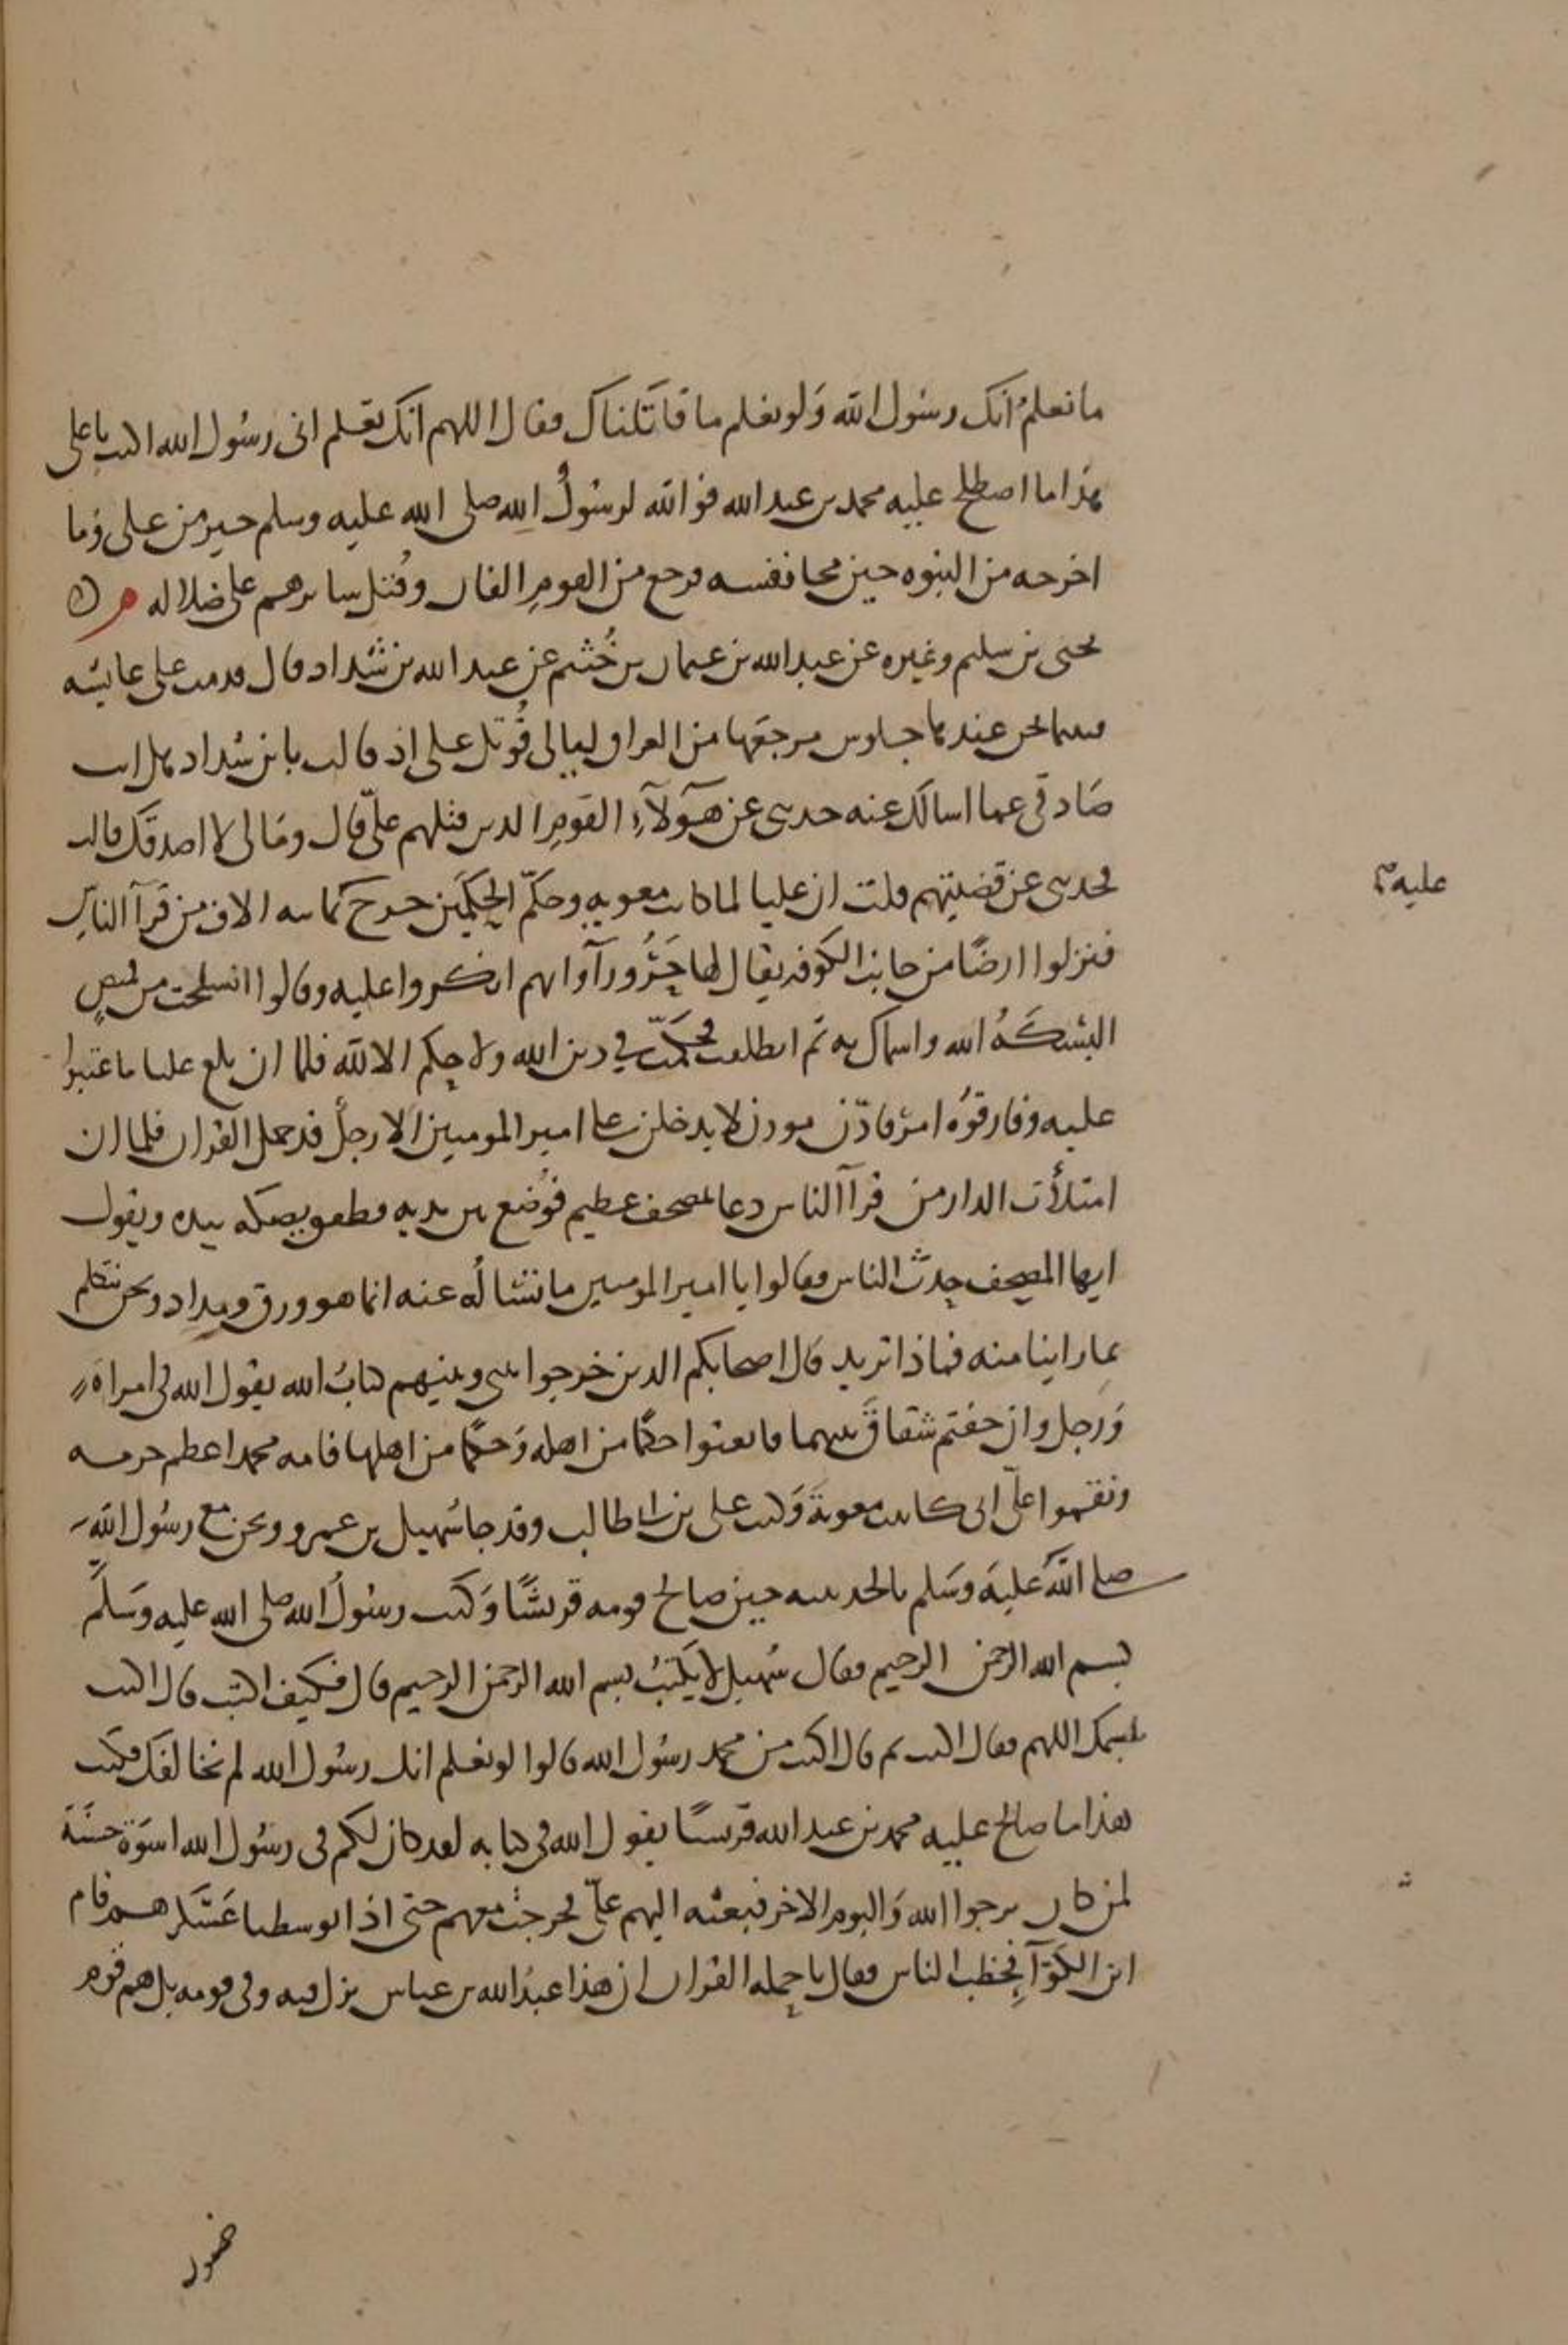 ما نعلم أنك رسول الله ولو نعلم ما قاتلناك فقال اللهم انك تعلم انى رسول الله اكتب يا على
هذا ما اصطلح عليه محمد بن عبد الله فوالله لرسول الله صلى الله عليه وسلم خير من على وما
اخرجه من النبوه حين محا نفسه فرجع من القوم الفان وقتل سايرهم على ضلاله
يحيى بن سليم وغيره عن عبد الله بن عثمان بن خثيم عن عبد الله بن شداد قال قدمت على عايشه
فبينا نحن عندها جلوس مرجعها من العراق ليالى قوتل على اذ قالت يا بن شداد هل انت
صادقى عما اسالك عنه حدثنى عن هؤلآء القوم الذين قتلهم علىّ قال ومالى لا اصدقك قالت
فحدثنى عن قضيتهم قلت ان عليا لما كاتب معويه وحكّم الحكمين خرج ثمانيه الاف من قرآ الناس
عليه
فنزلوا ارضًا من جانب الكوفه يقال لها حَرُورآ وانهم انكروا عليه وقالوا انسلخت من قميص
البسكه الله واسماك به ثم انطلقت فحكمت فى دين الله ولا حكم الا لله فلما ان بلغ عليا ما عتبوا
عليه وفارقوه امر فاذّن موذن لا يدخلن على امير المومنين الا رجل قد حمل القران فلما ان
امتلأت الدار من قرآ الناس دعا بمصحف عظيم فوُضع بين يديه فطفق يصكه بيده ويقول
ايها المصحف حدث الناس فقالوا يا امير المومنين ما تسأله عنه انما هو ورق ومداد ونحن نتكلم
بما راينا منه فماذا تريد قال اصحابكم الذين خرجوا بينى وبينهم كتاب الله يقول الله فى امراة
ورجل وان خفتم شقاق بينهما فابعثوا حكمًا من اهله وحكمًا من اهلها فامه محمد اعظم حرمه
ونقموا علىّ انى كاتبت معوية وكتب على بن ابى طالب وقد جا سُهيل بن عمرو ونحن مع رسول الله
صلى الله عليه وسلم بالحديبيه حين صالح قومه قريشًا وكتب رسول الله صلى الله عليه وسلم
بسم الله الرحمن الرحيم فقال سُهيل لا يكتب بسم الله الرحمن الرحيم قال فكيف اكتب قال اكتب
بسمك اللهم فقال اكتب ثم قال اكتب من محمد رسول الله قالوا لو نعلم انك رسول الله لم نخالفك فكتب
هذا ما صالح عليه محمد بن عبد الله قريشًا يقول الله فى كتابه لقد كان لكم فى رسول الله اسوة حسنة
لمن كان يرجوا الله واليوم الاخر فبعثه اليهم علىّ فخرجت معهم حتى اذا توسطنا عسكرهم قام
ابن الكوّآ فخطب الناس فقال يا حمله القران ان هذا عبد الله بن عباس نزل فيه وفى قومه بل هم قوم